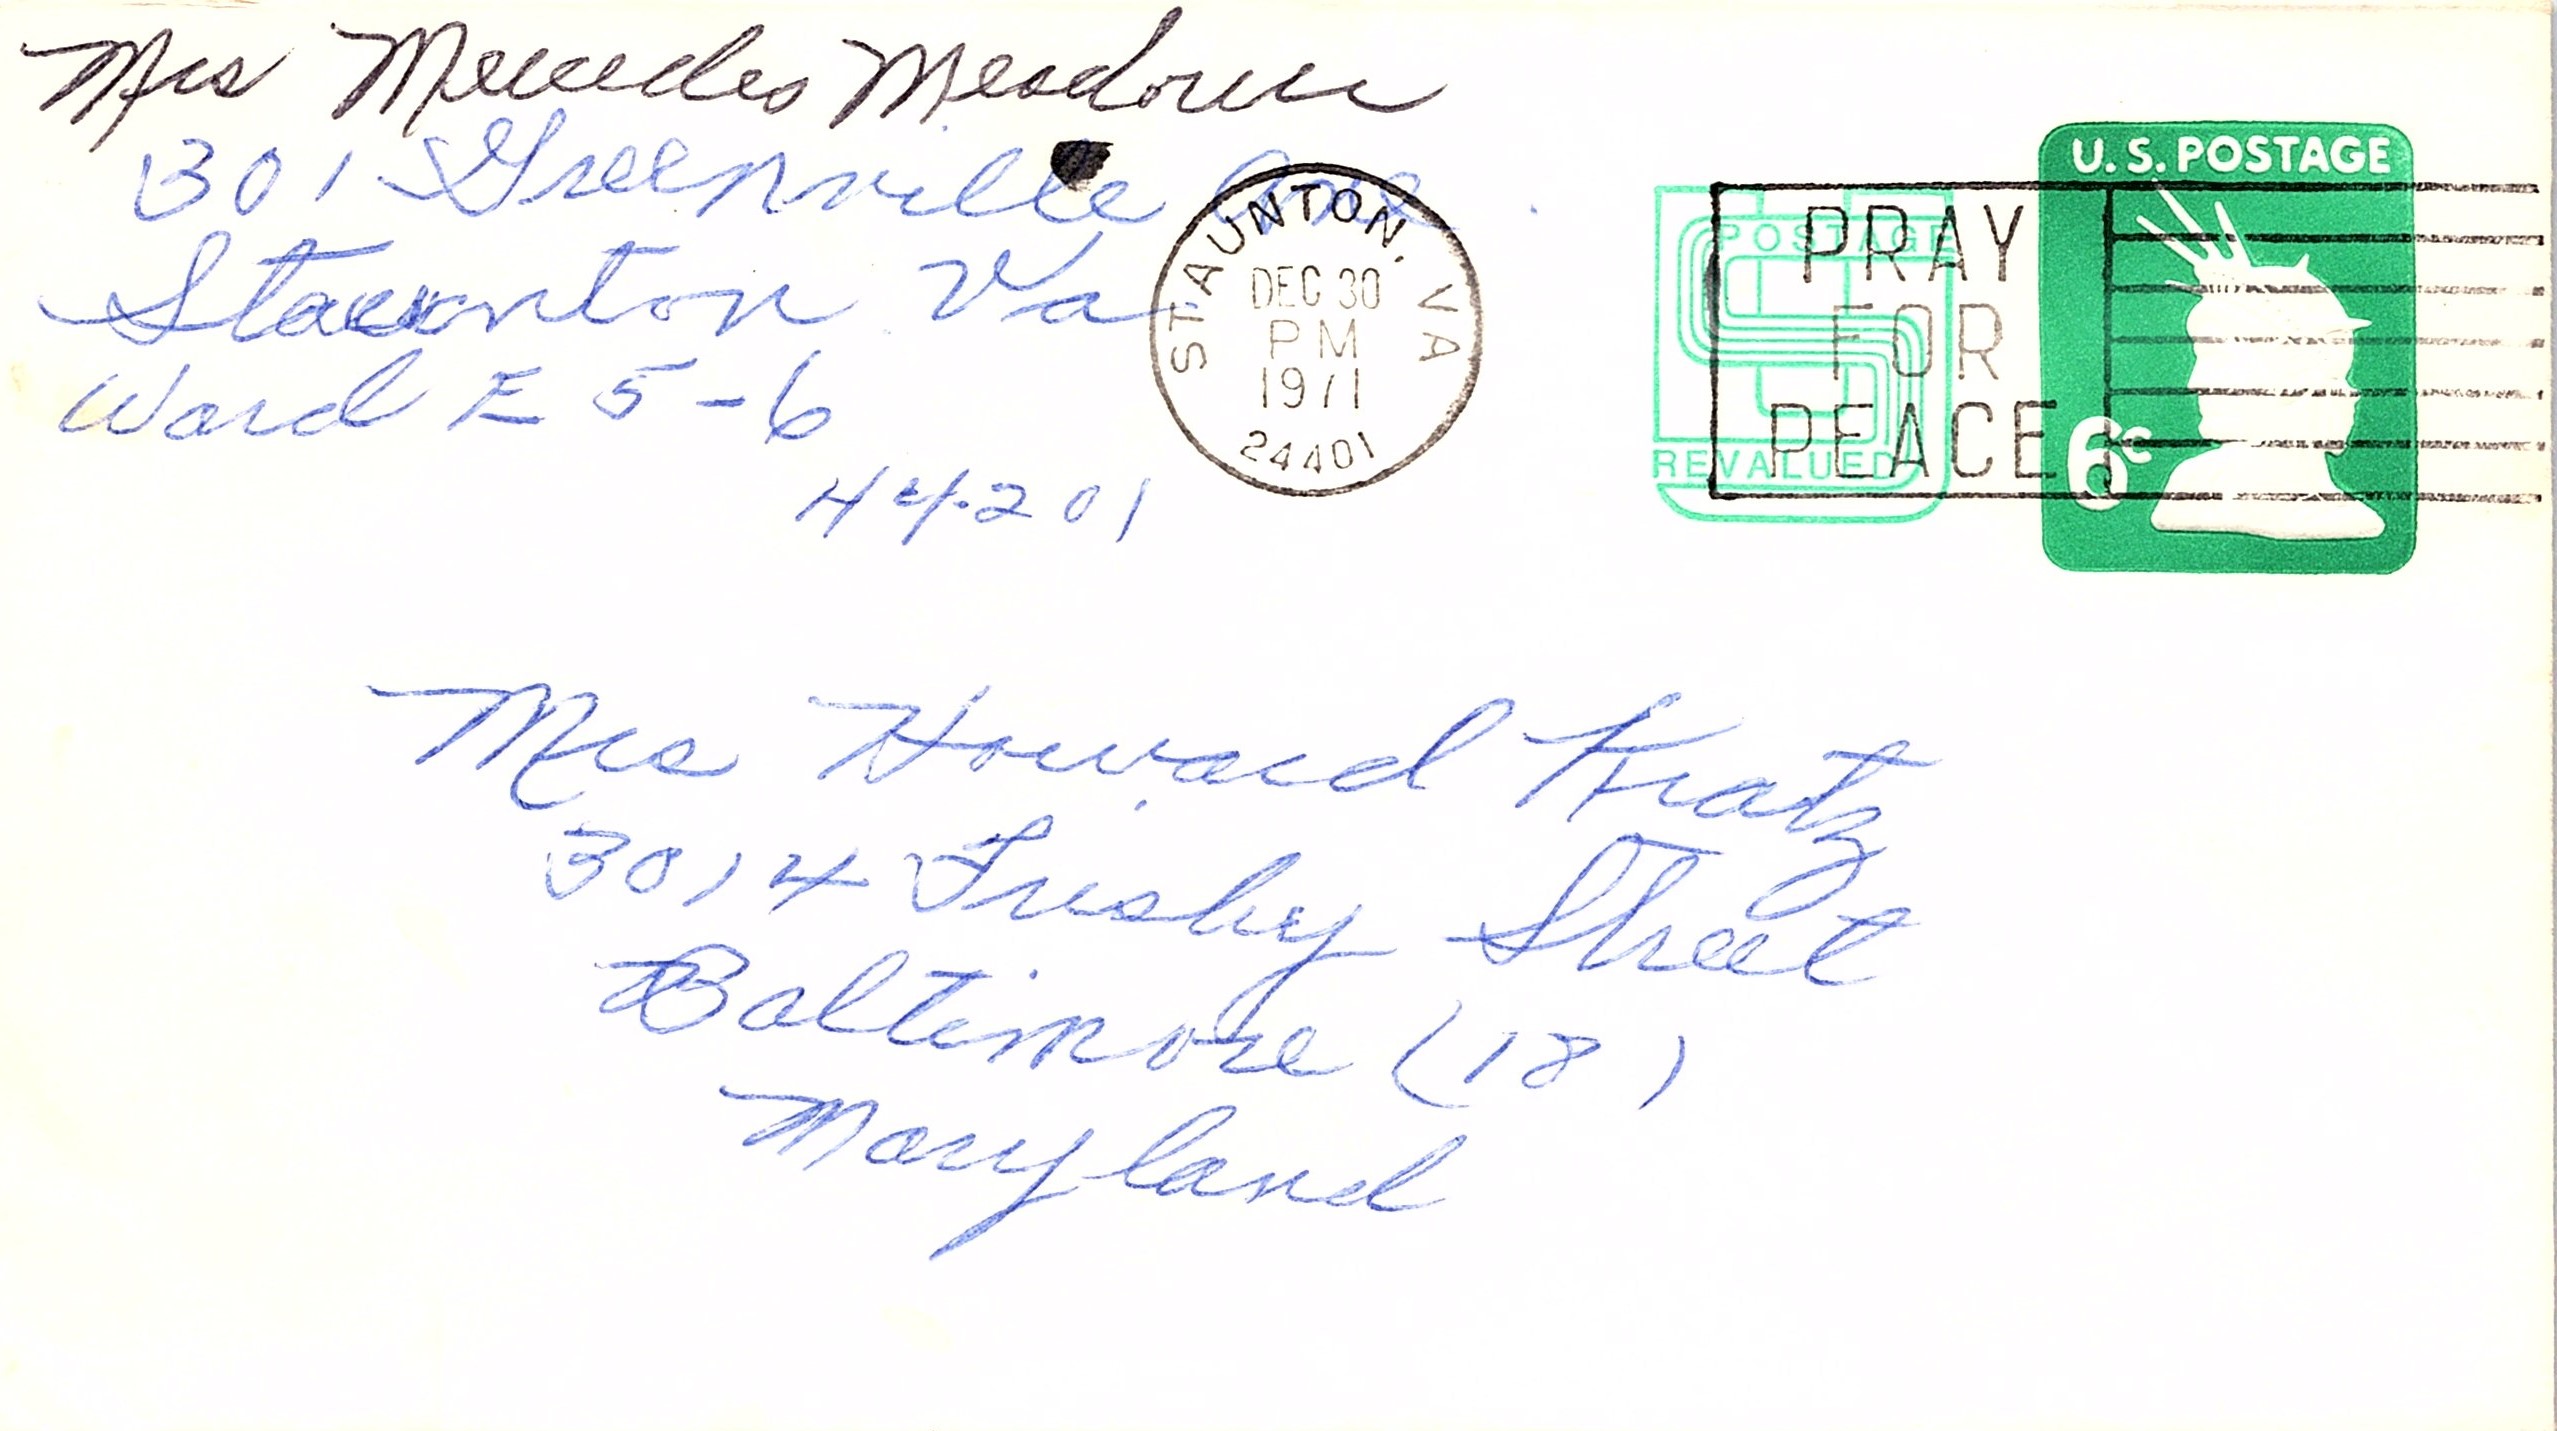 Mrs Mercedes Meadows
301 Greenville Ave
Staunton Va
Ward E 5-6
44201
STAUNTON, VA
DEC 30
PM
1971
24401
POSTAGE
REVALUED
PRAY
FOR
PEACE
U.S. POSTAGE
6c
Mrs Howard Kratz
3014 Frisby Street
Baltimore (18)
Maryland